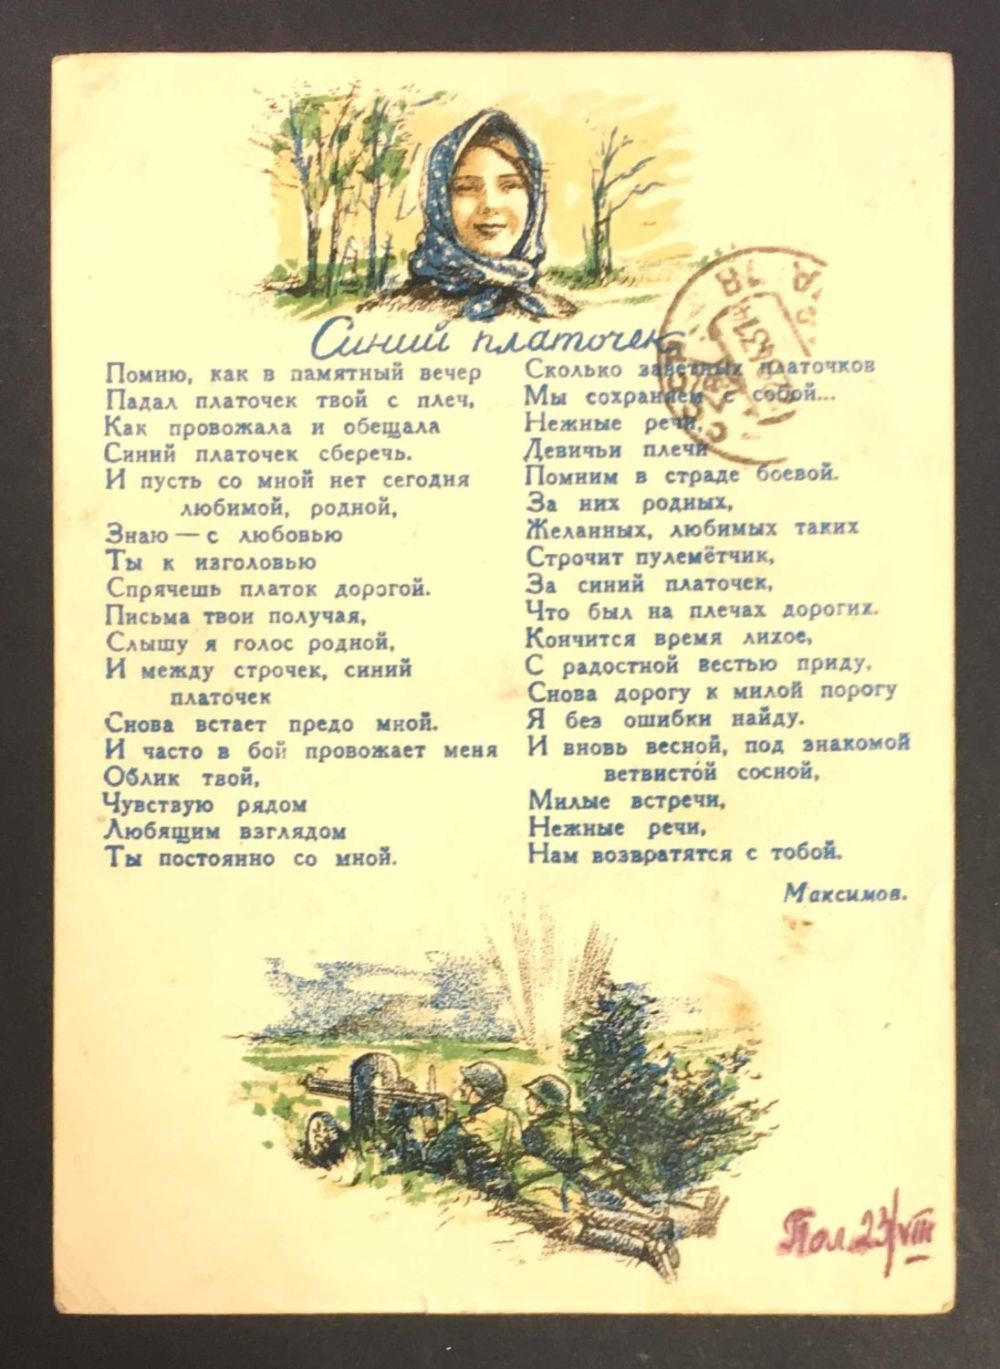 Синий платочек
Помню, как в памятный вечер
Падал платочек твой с плеч,
Как провожала и обещала
Синий платочек сберечь.
И пусть со мной нет сегодня
любимой, родной,
Знаю — с любовью
Ты к изголовью
Спрячешь платок дорогой.
Письма твои получая,
Слышу я голос родной,
И между строчек, синий
платочек
Снова встает предо мной.
И часто в бой провожает меня
Облик твой,
Чувствую рядом
Любящим взглядом
Ты постоянно со мной.
Сколько заветных платочков
Мы сохраняем с собой...
Нежные речи,
Девичьи плечи
Помним в страде боевой.
За них родных,
Желанных, любимых таких
Строчит пулемётчик,
За синий платочек,
Что был на плечах дорогих.
Кончится время лихое,
С радостной вестью приду,
Снова дорогу к милой порогу
Я без ошибки найду.
И вновь весной, под знакомой
ветвистой сосной,
Милые встречи,
Нежные речи,
Нам возвратятся с тобой.
Максимов.
Пол. 23/VIII